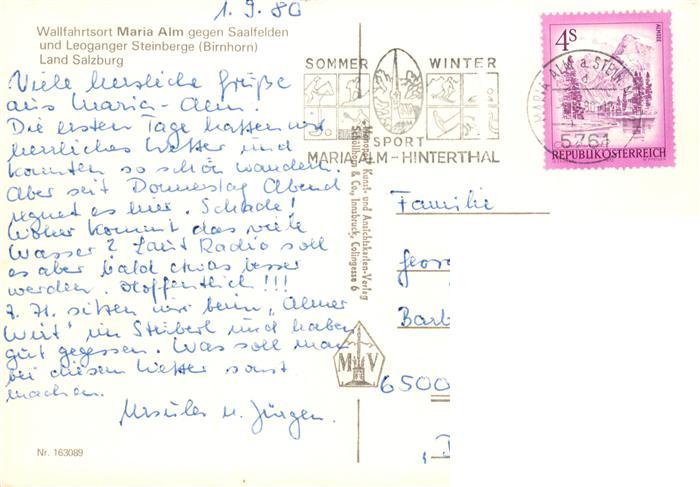 1. 9. 80
Wallfahrtsort Maria Alm gegen Saalfelden
und Leoganger Steinberge (Birnhorn)
Land Salzburg
Viele herzliche Grüße
aus Maria-Alm.
Die ersten Tage hatten wir
herrliches Wetter und
konnten so schön wandern.
Aber seit Donnerstag Abend
regnet es hier. Schade!
Woher kommt das viele
Wasser? Laut Radio soll
es aber bald etwas besser
werden. Hoffentlich!!!
z. Zt. sitzen wir beim "Almer
Wirt" im Stüberl und haben
gut gegessen. Was soll man
bei diesem Wetter sonst
machen.
Ursula u. Jürgen.
Nr. 163089
Monopol Kunst- und Ansichtskarten-Verlag
Schöllhorn & Co., Innsbruck, Colingasse 6
M V
SOMMER WINTER
SPORT
MARIA ALM - HINTERTHAL
4S
ALMSEE
REPUBLIK ÖSTERREICH
MARIA ALM a. STEIN.
5761
Familie
Georg
Barb
6500